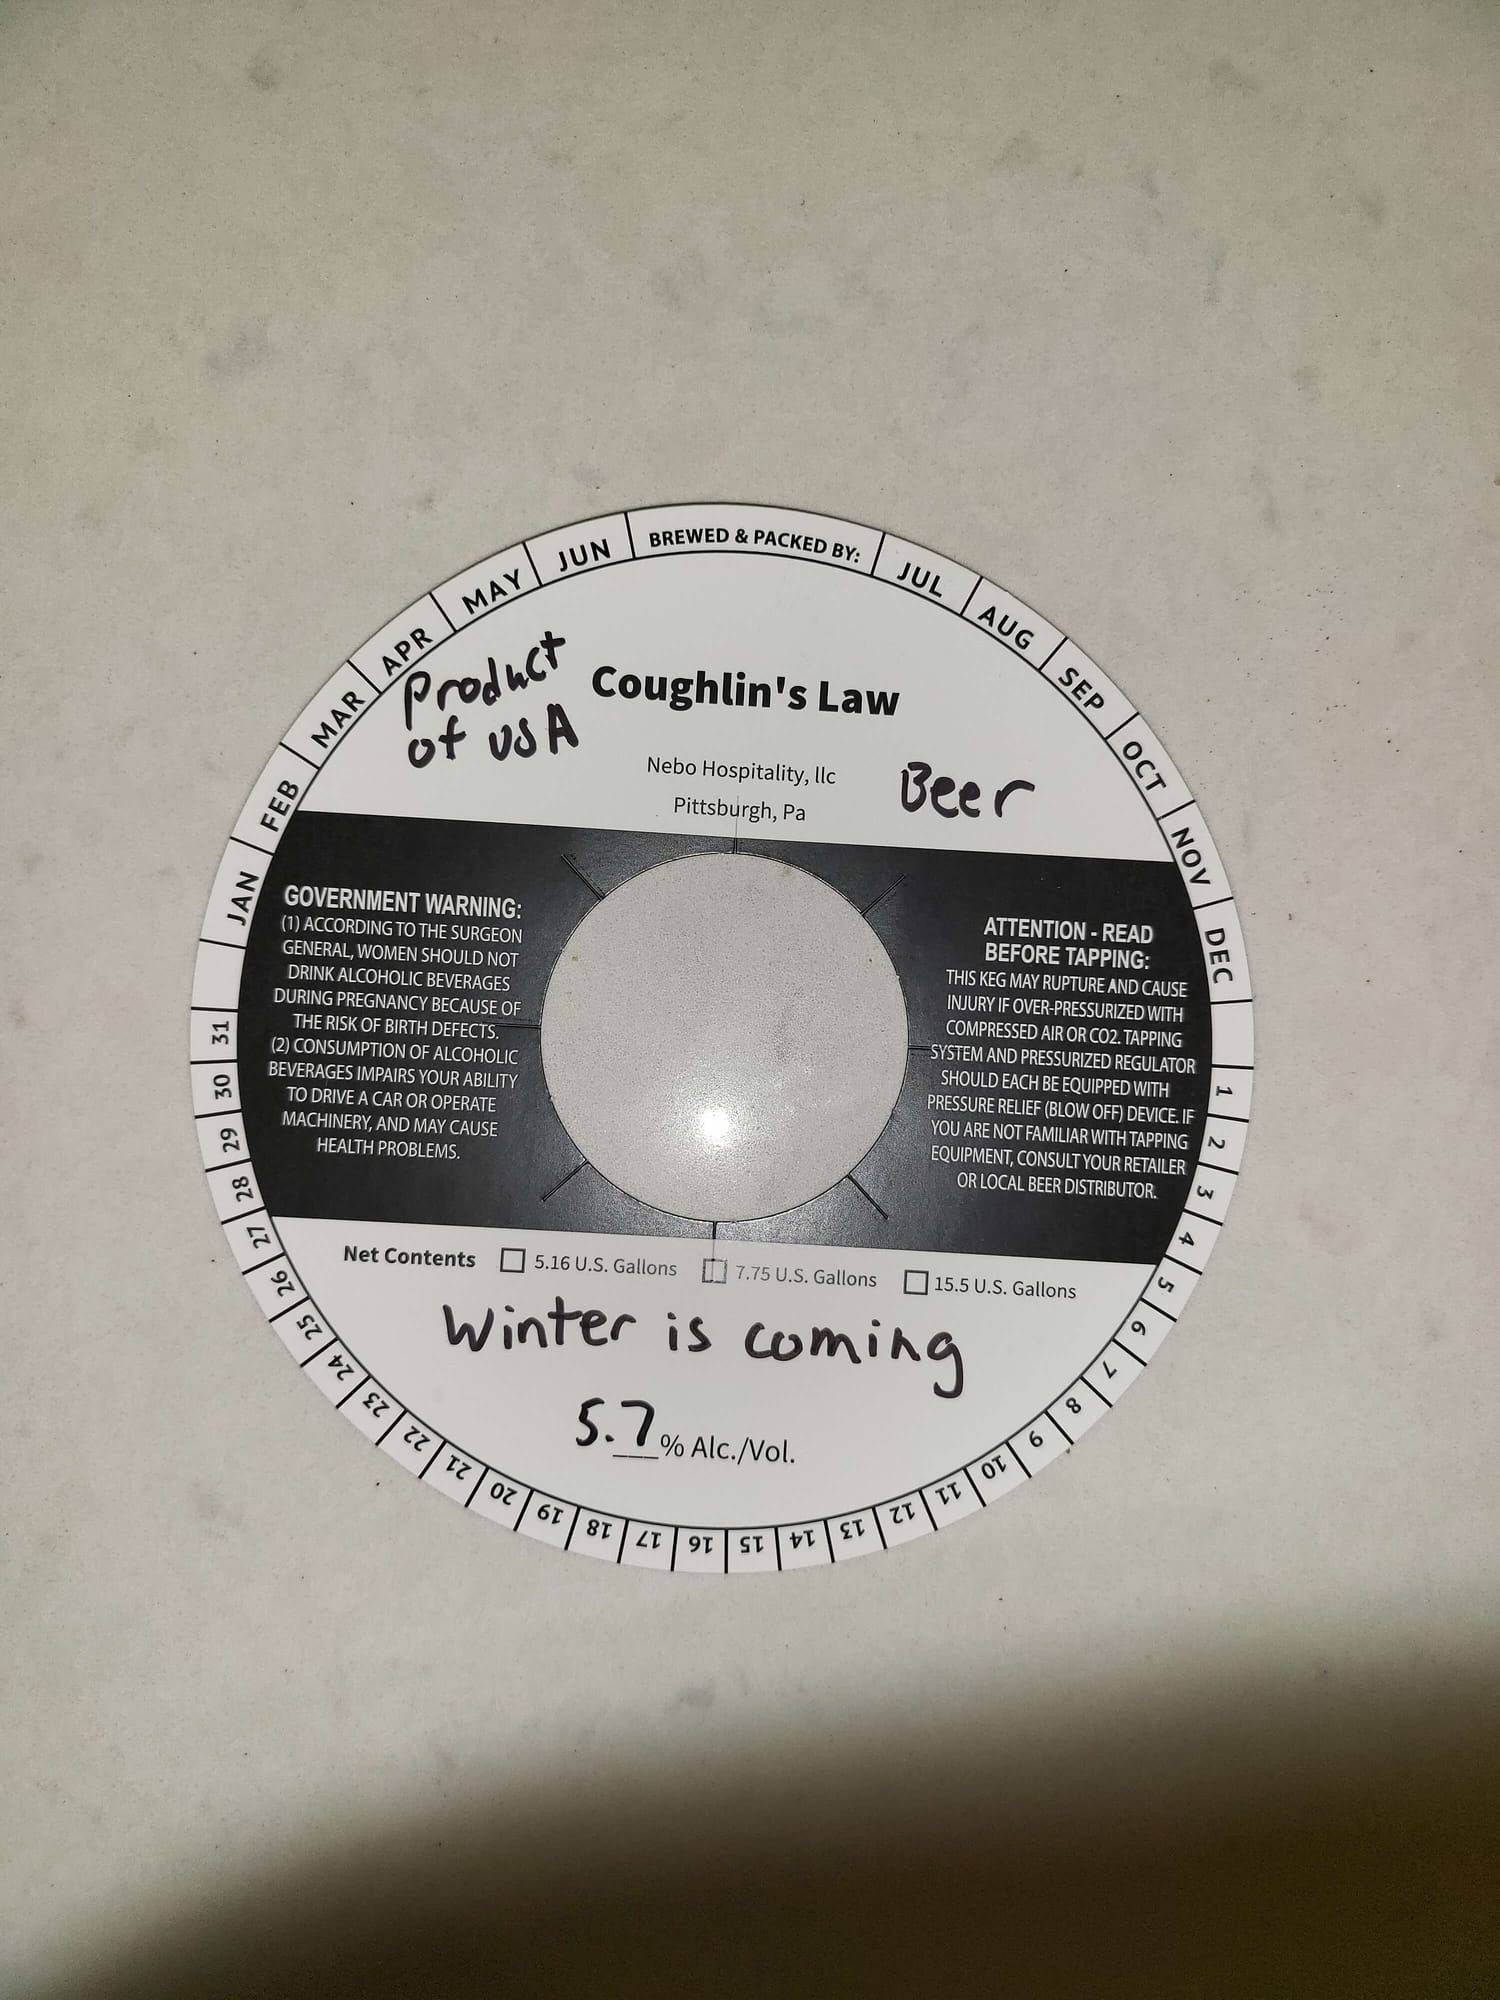 BREWED & PACKED BY:
JAN FEB MAR APR MAY JUN
JUL AUG SEP OCT NOV DEC
Product
of USA
Coughlin's Law
Nebo Hospitality, llc
Pittsburgh, Pa
Beer
GOVERNMENT WARNING:
(1) ACCORDING TO THE SURGEON
GENERAL, WOMEN SHOULD NOT
DRINK ALCOHOLIC BEVERAGES
DURING PREGNANCY BECAUSE OF
THE RISK OF BIRTH DEFECTS.
(2) CONSUMPTION OF ALCOHOLIC
BEVERAGES IMPAIRS YOUR ABILITY
TO DRIVE A CAR OR OPERATE
MACHINERY, AND MAY CAUSE
HEALTH PROBLEMS.
ATTENTION - READ
BEFORE TAPPING:
THIS KEG MAY RUPTURE AND CAUSE
INJURY IF OVER-PRESSURIZED WITH
COMPRESSED AIR OR CO2. TAPPING
SYSTEM AND PRESSURIZED REGULATOR
SHOULD EACH BE EQUIPPED WITH
PRESSURE RELIEF (BLOW OFF) DEVICE. IF
YOU ARE NOT FAMILIAR WITH TAPPING
EQUIPMENT, CONSULT YOUR RETAILER
OR LOCAL BEER DISTRIBUTOR.
Net Contents 5.16 U.S. Gallons 7.75 U.S. Gallons 15.5 U.S. Gallons
Winter is coming
5.7% Alc./Vol.
1 2 3 4 5 6 7 8 9 10 11 12 13 14 15 16 17 18 19 20 21 22 23 24 25 26 27 28 29 30 31